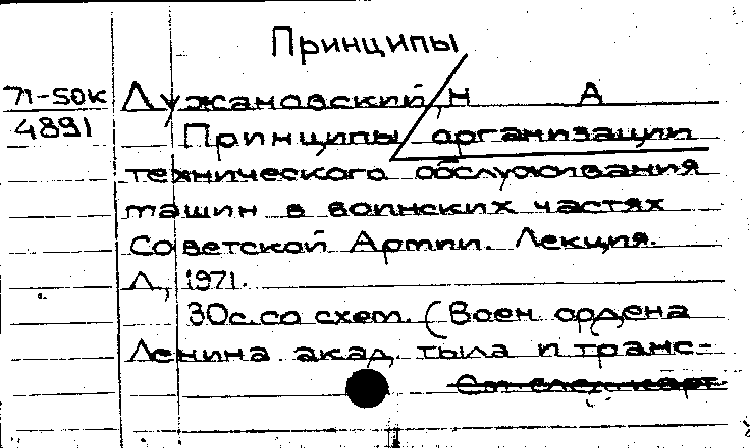 Принципы
71-50к Лужановский, Н А
4891 Принципы организации
технического обслуживания
машин в воинских частях
Советской Армии. Лекция.
Л., 1971.
30с. со схем. (Воен ордена
Ленина акад. тыла и транс-
См след карт